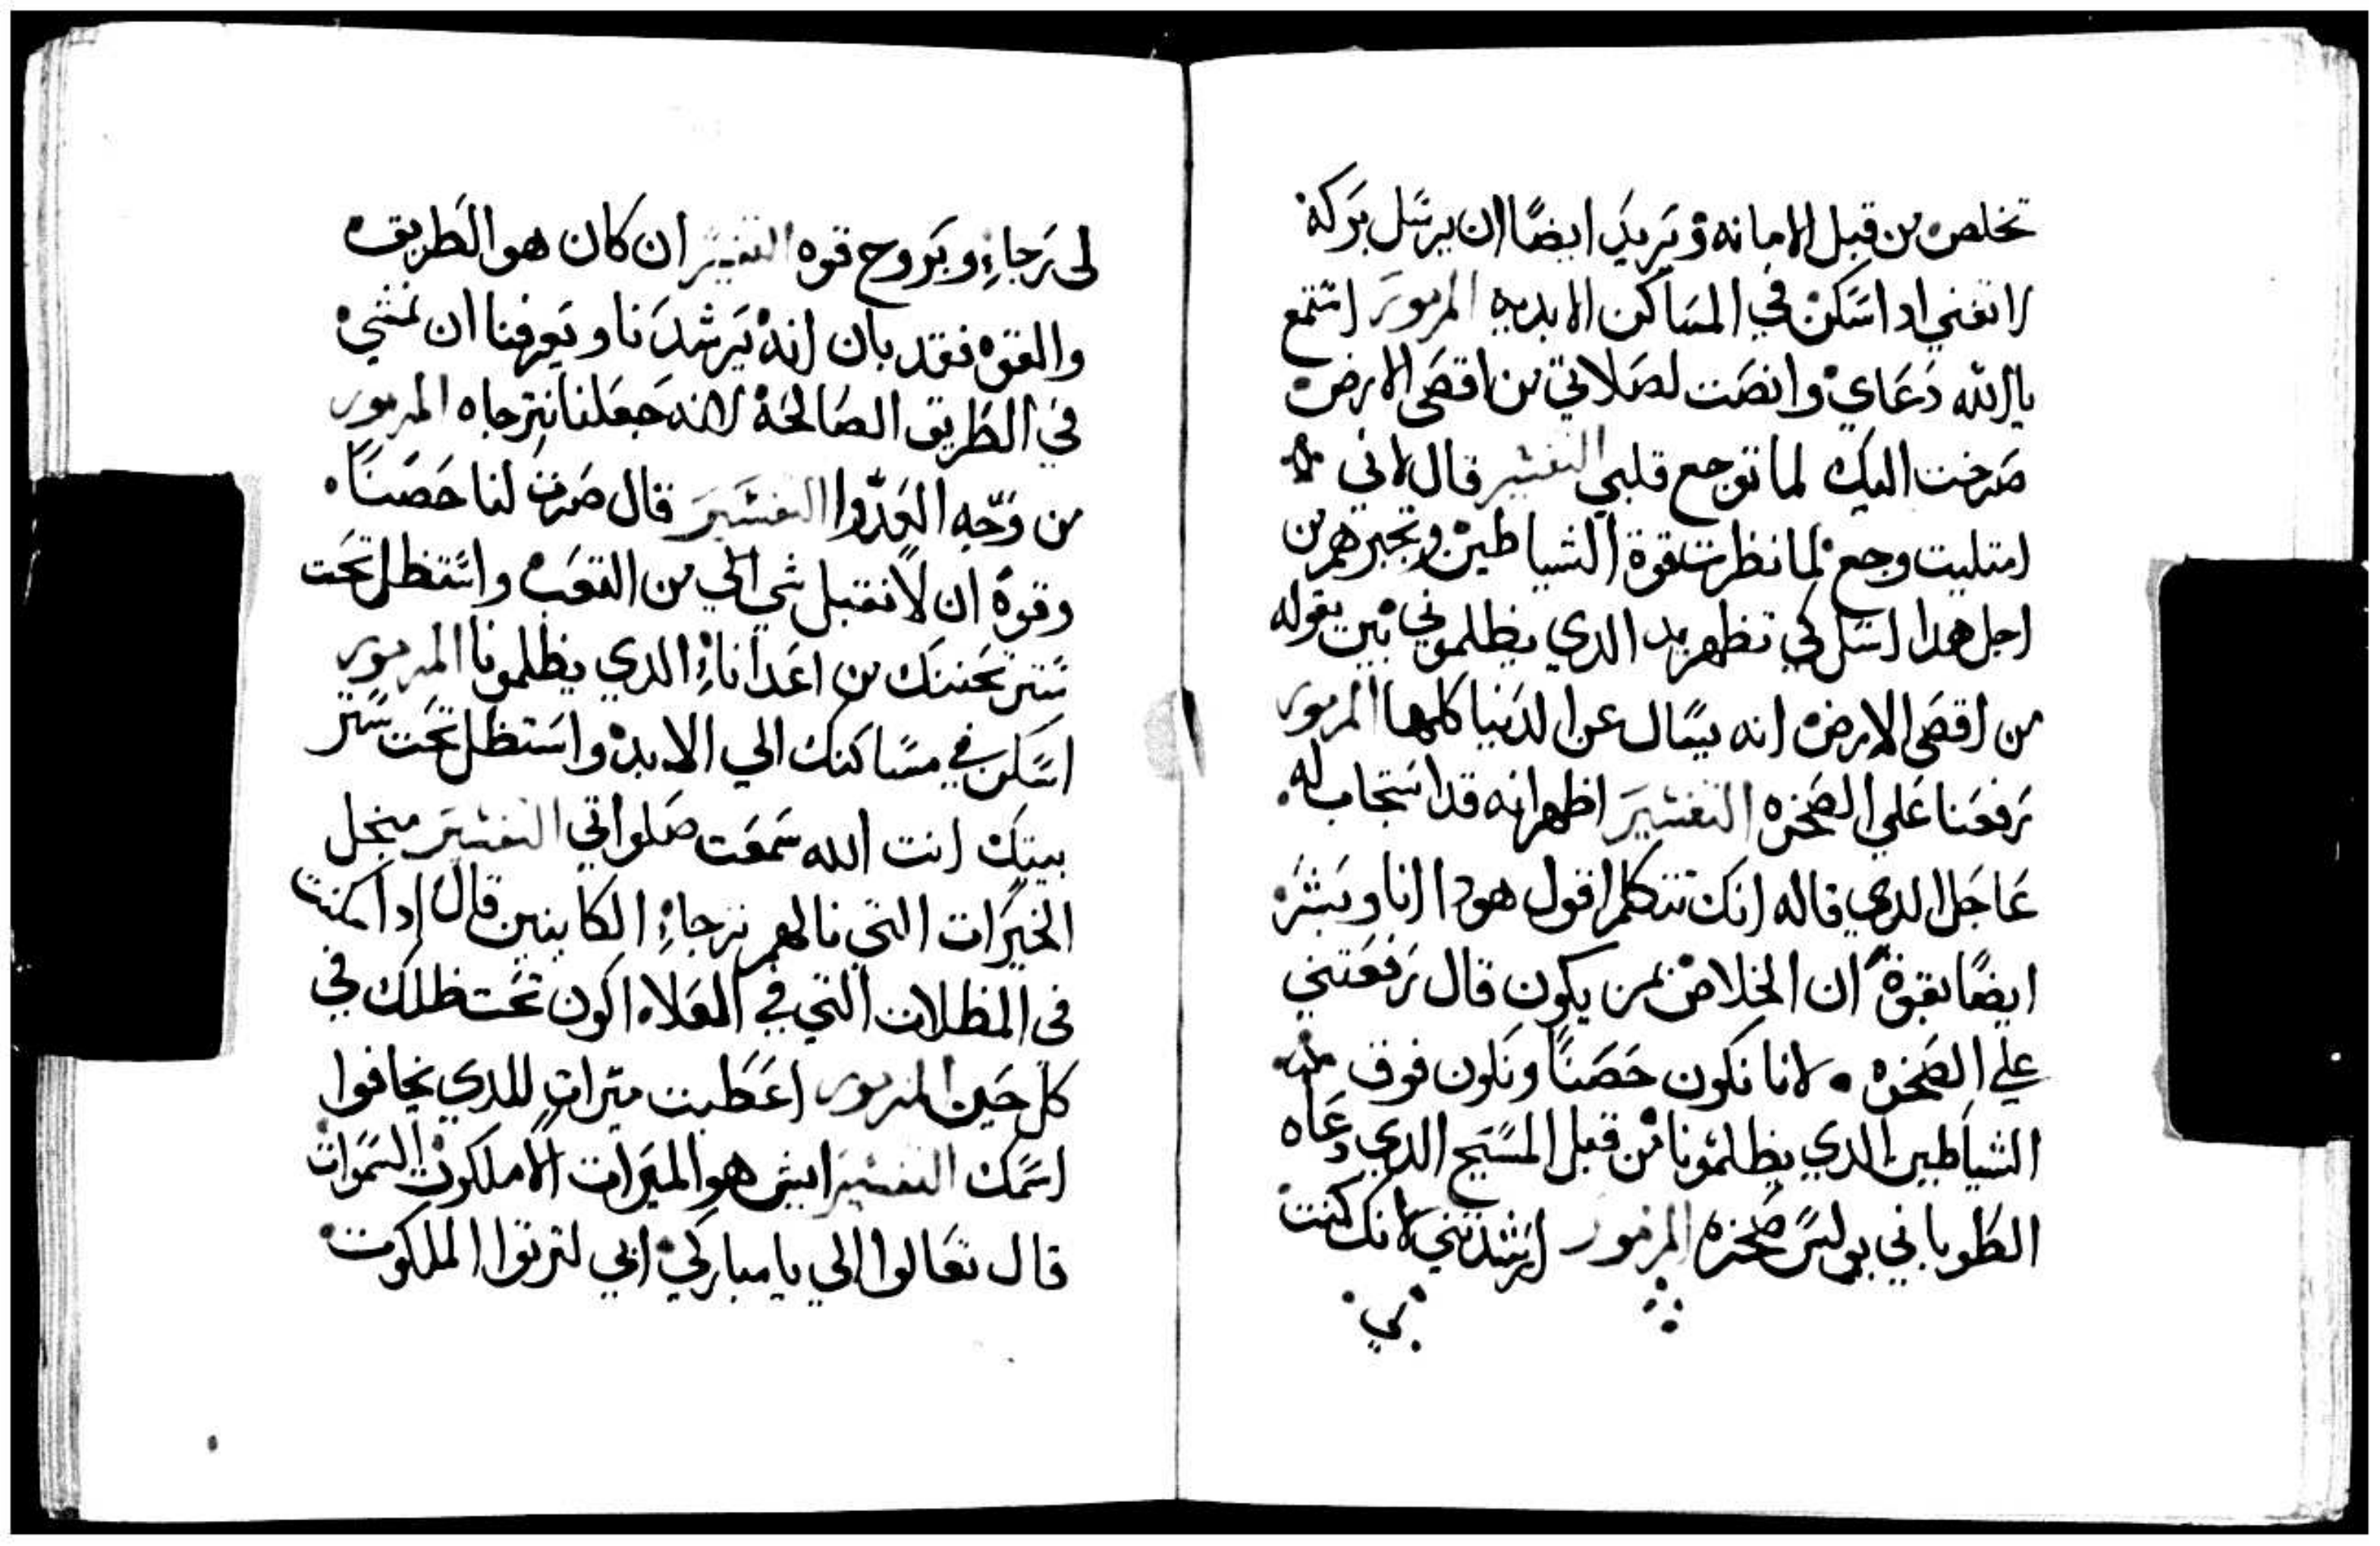 تخلص من قبل الامانه وَيَريدَ ايضًا ان يرسَل بَركة
لاتفني اد اسَكن في المسَاكن الابديه المزمورَ استمع
يا الله دَعَاي وانصَت لصَلاتي من اقصَى الارض
صَرخت اليك لما توجع قلبي التفسير قال لاني
امتليت وجع لما نظرت قوة الشياطين وتجبرهم من
اجل هدا اسَل لكي تظهر يد الدي يظلموني بين بقوله
من اقصَى الارض انه يسَال عن الدَنيا كلها المزمور
رَفعَنا عَلي الصَخره التفسيَر اظهر انه قد استَجاب له
عَاجَل الدي قاله انك تتكلم اقول هودا انا وبَشرَ
ايضًا بقوة ان الخلاص بمن يكون قال رَفعَتني
علي الصَخره لانا نكون حَصَنًا ونكون فوق من
الشياطين الدي يظلمونا من قبل المسَيح الدي دعَاه
الطَوباني بولسَ صَخره المزمور ارشدتني لانك كنت
لي
لى رَجاء وبَروح قوه التفسير ان كان هو الطَريق
والقوه فقد بان انه يَرشدَنا ويَعرفنا ان نمشي
في الطَريق الصَالحة لانه جَعَلنا نترجاه المزمور
من وَجه العَدَوا التفسَيَر قال صَرت لنا حَصَنًا
وقوة ان لا نقبل شي الي من التعَب واسَتظل تحَت
سَتر تحَننك من اعَداناء الدي يظلمونا المزمور
اسَكن في مسَاكنك الي الابد واسَتظل تحَت سَتر
بيتك انت الله سَمعَت صَلواتي التفسَيَر منجل
الخيَرات التي نالهم نرجاء الكاينين قال ادا سكنت
في المظلات التي في العَلاه اكون تحَت ظلك في
كل حَين المزمور اعَطَيت ميَرات للدي يخافوا
اسَمك التفسير ايش هو الميَرات الا ملكوت السَموات
قال تعَالوا الي يا مباركي ابي لترتوا الملكوت